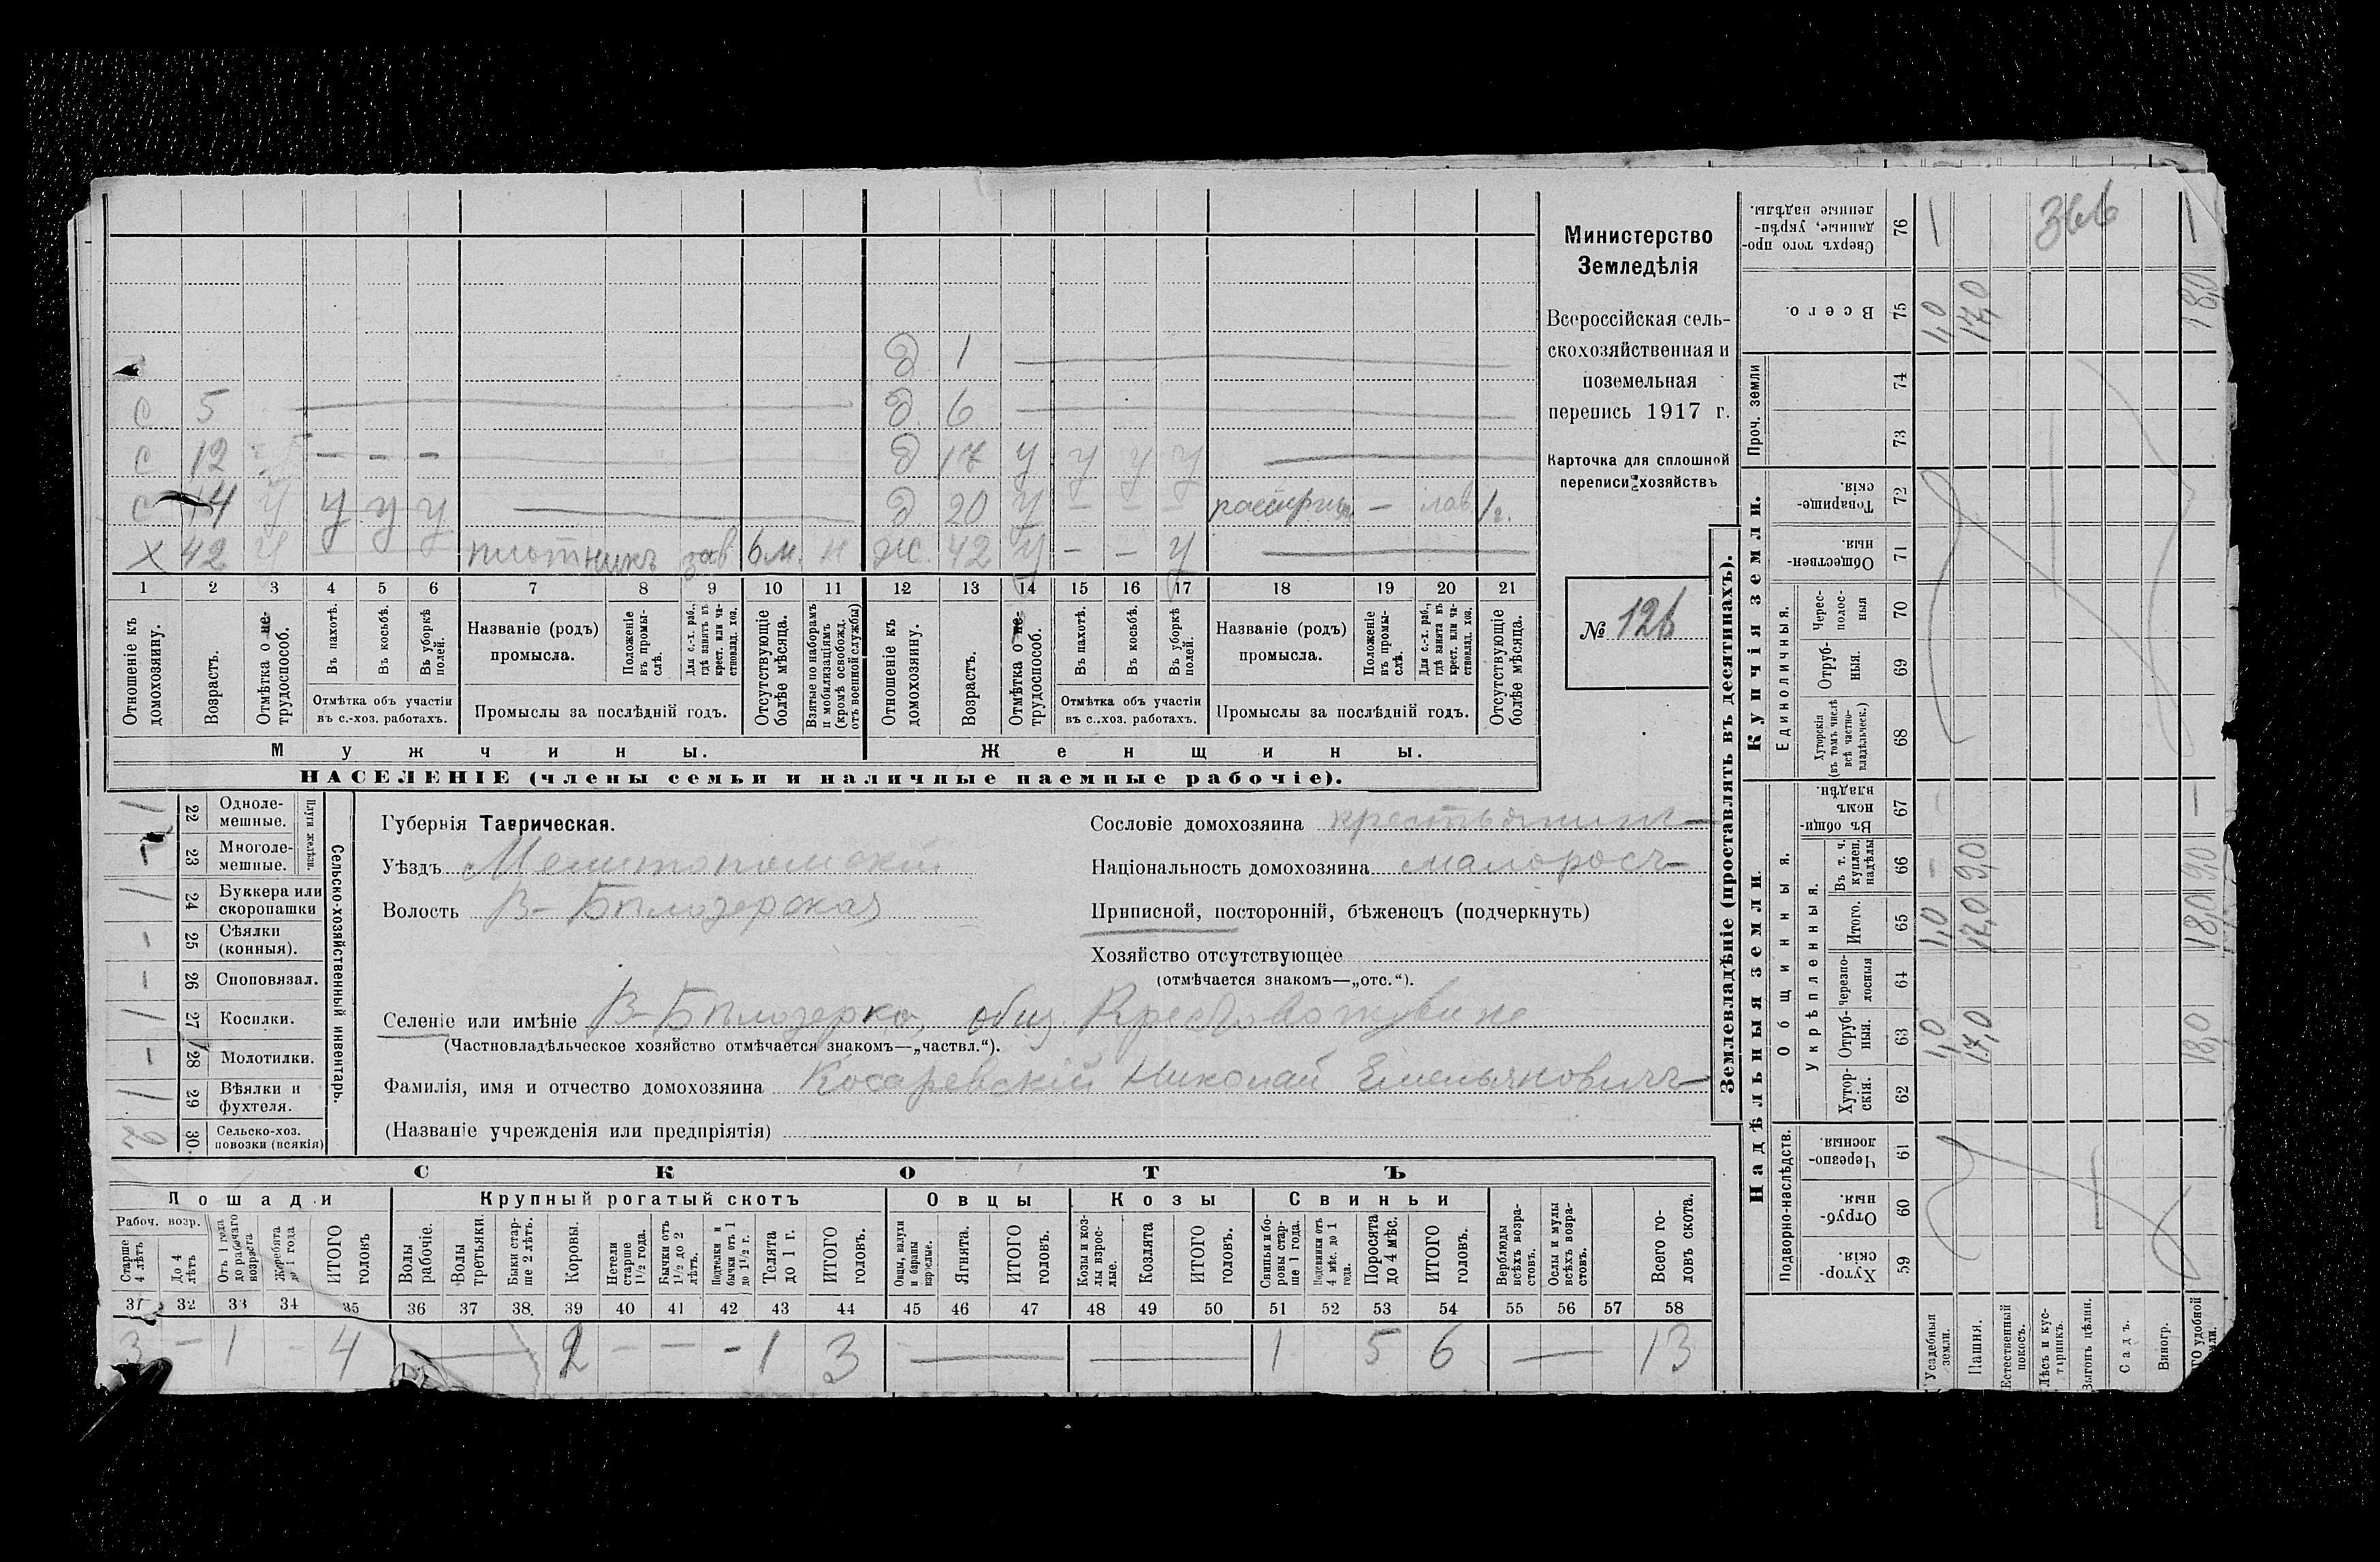 д 1
с 5 д 6
с 12 - - - д 17 у у у у
с 14 у у у у д 20 у - - - лав 1г.
х 42 у плотникъ зав 6 м. н ж. 42 у - - у
1 2 3 4 5 6 7 8 9 10 11 12 13 14 15 16 17 18 19 20 21
Отношеніе къ домохозяину.
Возрастъ.
Отмѣтка о не-трудоспособ.
Въ пахотѣ.
Въ косьбѣ.
Въ уборкѣ полей.
Отмѣтка объ участіи
въ с.-хоз. работахъ.
Названіе (родъ)
промысла.
Положеніе въ промы-слѣ.
Для с.-х. раб., гдѣ занятъ въ крест. или ча-стновлад. хоз.
Промыслы за послѣдній годъ.
Отсутствующіе болѣе мѣсяца.
Взятые по наборамъ и мобилизаціямъ (кромѣ освобожд. отъ военной службы)
Отношеніе къ домохозяину.
Возрастъ.
Отмѣтка о не-трудоспособ.
Въ пахотѣ.
Въ косьбѣ.
Въ уборкѣ полей.
Отмѣтка объ участіи
въ с..хоз. работахъ.
Названіе (родъ)
промысла.
Положеніе въ промы-слѣ.
Для с.-х. раб., гдѣ занята въ крест. или ча-стновлад. хоз.
Промыслы за послѣдній годъ.
Отсутствующіе болѣе мѣсяца.
Мужчины. Женщины.
НАСЕЛЕНІЕ (члены семьи и наличные наемные рабочіе).
Министерство
Земледѣлія
Всероссійская сель-
скохозяйственная и
поземельная
перепись 1917 г.
Карточка для сплошной
переписи хозяйствъ
№ 126
Сельско-хозяйственный инвентарь.
Плуги желѣзн.
1 22 Одноле-мешные.
- 23 Многоле-мешные.
1 24 Буккера или скоропашки
- 25 Сѣялки (конныя).
- 26 Сноповязал.
1 27 Косилки.
- 28 Молотилки.
1 29 Вѣялки и фухтеля.
2 30. Сельско-хоз. повозки (всякія)
Губернія Таврическая.
Уѣздъ Мелитопольскій
Волость В-Бѣлозерская
Сословіе домохозяина крестьянинъ
Національность домохозяина малоросъ
Приписной, посторонній, бѣженецъ (подчеркнуть)
Хозяйство отсутствующее
(отмѣчается знакомъ—„отс.“).
Селеніе или имѣніе В-Бѣлозерка, общ. Крестовоздвиже
(Частновладѣльческое хозяйство отмѣчается знакомъ—„частвл.“).
Фамилія, имя и отчество домохозяина Косаревскій Николай Емельяновичъ
(Названіе учрежденія или предпріятія)
СКОТЪ
Лошади Крупный рогатый скотъ Овцы Козы Свиньи
Рабоч. возр.
Старше 4 лѣтъ
До 4 лѣтъ
Отъ 1 года до рабочаго возраста
Жеребята до 1 года
ИТОГО головъ
Волы рабочіе.
Волы третьяки.
Быки стар-ше 2 лѣтъ.
Коровы.
Нетели старше 1½ года.
Бычки отъ 1½ до 2 лѣтъ.
Подтелки и бычки отъ 1 до 1½ г.
Телята до 1 г.
ИТОГО головъ.
Овцы, валухи и бараны взрослые.
Ягнята.
ИТОГО головъ.
Козы и коз-лы взрос-лые.
Козлята
ИТОГО головъ.
Свиньи и бо-ровы стар-ше 1 года.
Подсвинки отъ 4 мѣс. до 1 года.
Поросята до 4 мѣс.
ИТОГО головъ.
Верблюды всѣхъ возра-стовъ.
Ослы и мулы всѣхъ возра-стовъ.
Всего го-ловъ скота.
31 32 33 34 35 36 37 38. 39 40 41 42 43 44 45 46 47 48 49 50 51 52 53 54 55 56 57 58
3 - 1 - 4 — 2 - - - 1 3 — — 1 5 6 — 13
Землевладѣніе (проставлять въ десятинахъ).
Надѣльныя земли. Купчія земли. Проч. земли
Подворно-наслѣдств.
Общинныя.
Укрѣпленныя.
Единоличныя.
Хутор-скія. 59
Отруб-ныя. 60
Черезпо-лосныя. 61
Хутор-скія. 62
Отруб-ныя. 63
Черезпо-лосныя 64
Итого. 65
Въ т. ч. куплен. надѣлы 66
Въ общин-номъ владѣн. 67
Хуторскія (въ томъ числѣ всѣ частно-владѣльческ.) 68
Отруб-ныя. 69
Черес-полос-ныя 70
Обществен-ныя. 71
Товарище-скія. 72
73
74
Всего. 75
Сверхъ того про-данные, укрѣп-ленные надѣлы. 76
Усадебныя земли. 1,0 1,0 - 1,0
Пашня. 17,0 17,0 9,0 17,0
Естественный покосъ.
Лѣсъ и кус-тарникъ.
Выгонъ цѣлин.
Садъ.
Виногр.
ГО удобной 18,0 18,0 9,0 - 18,0
366